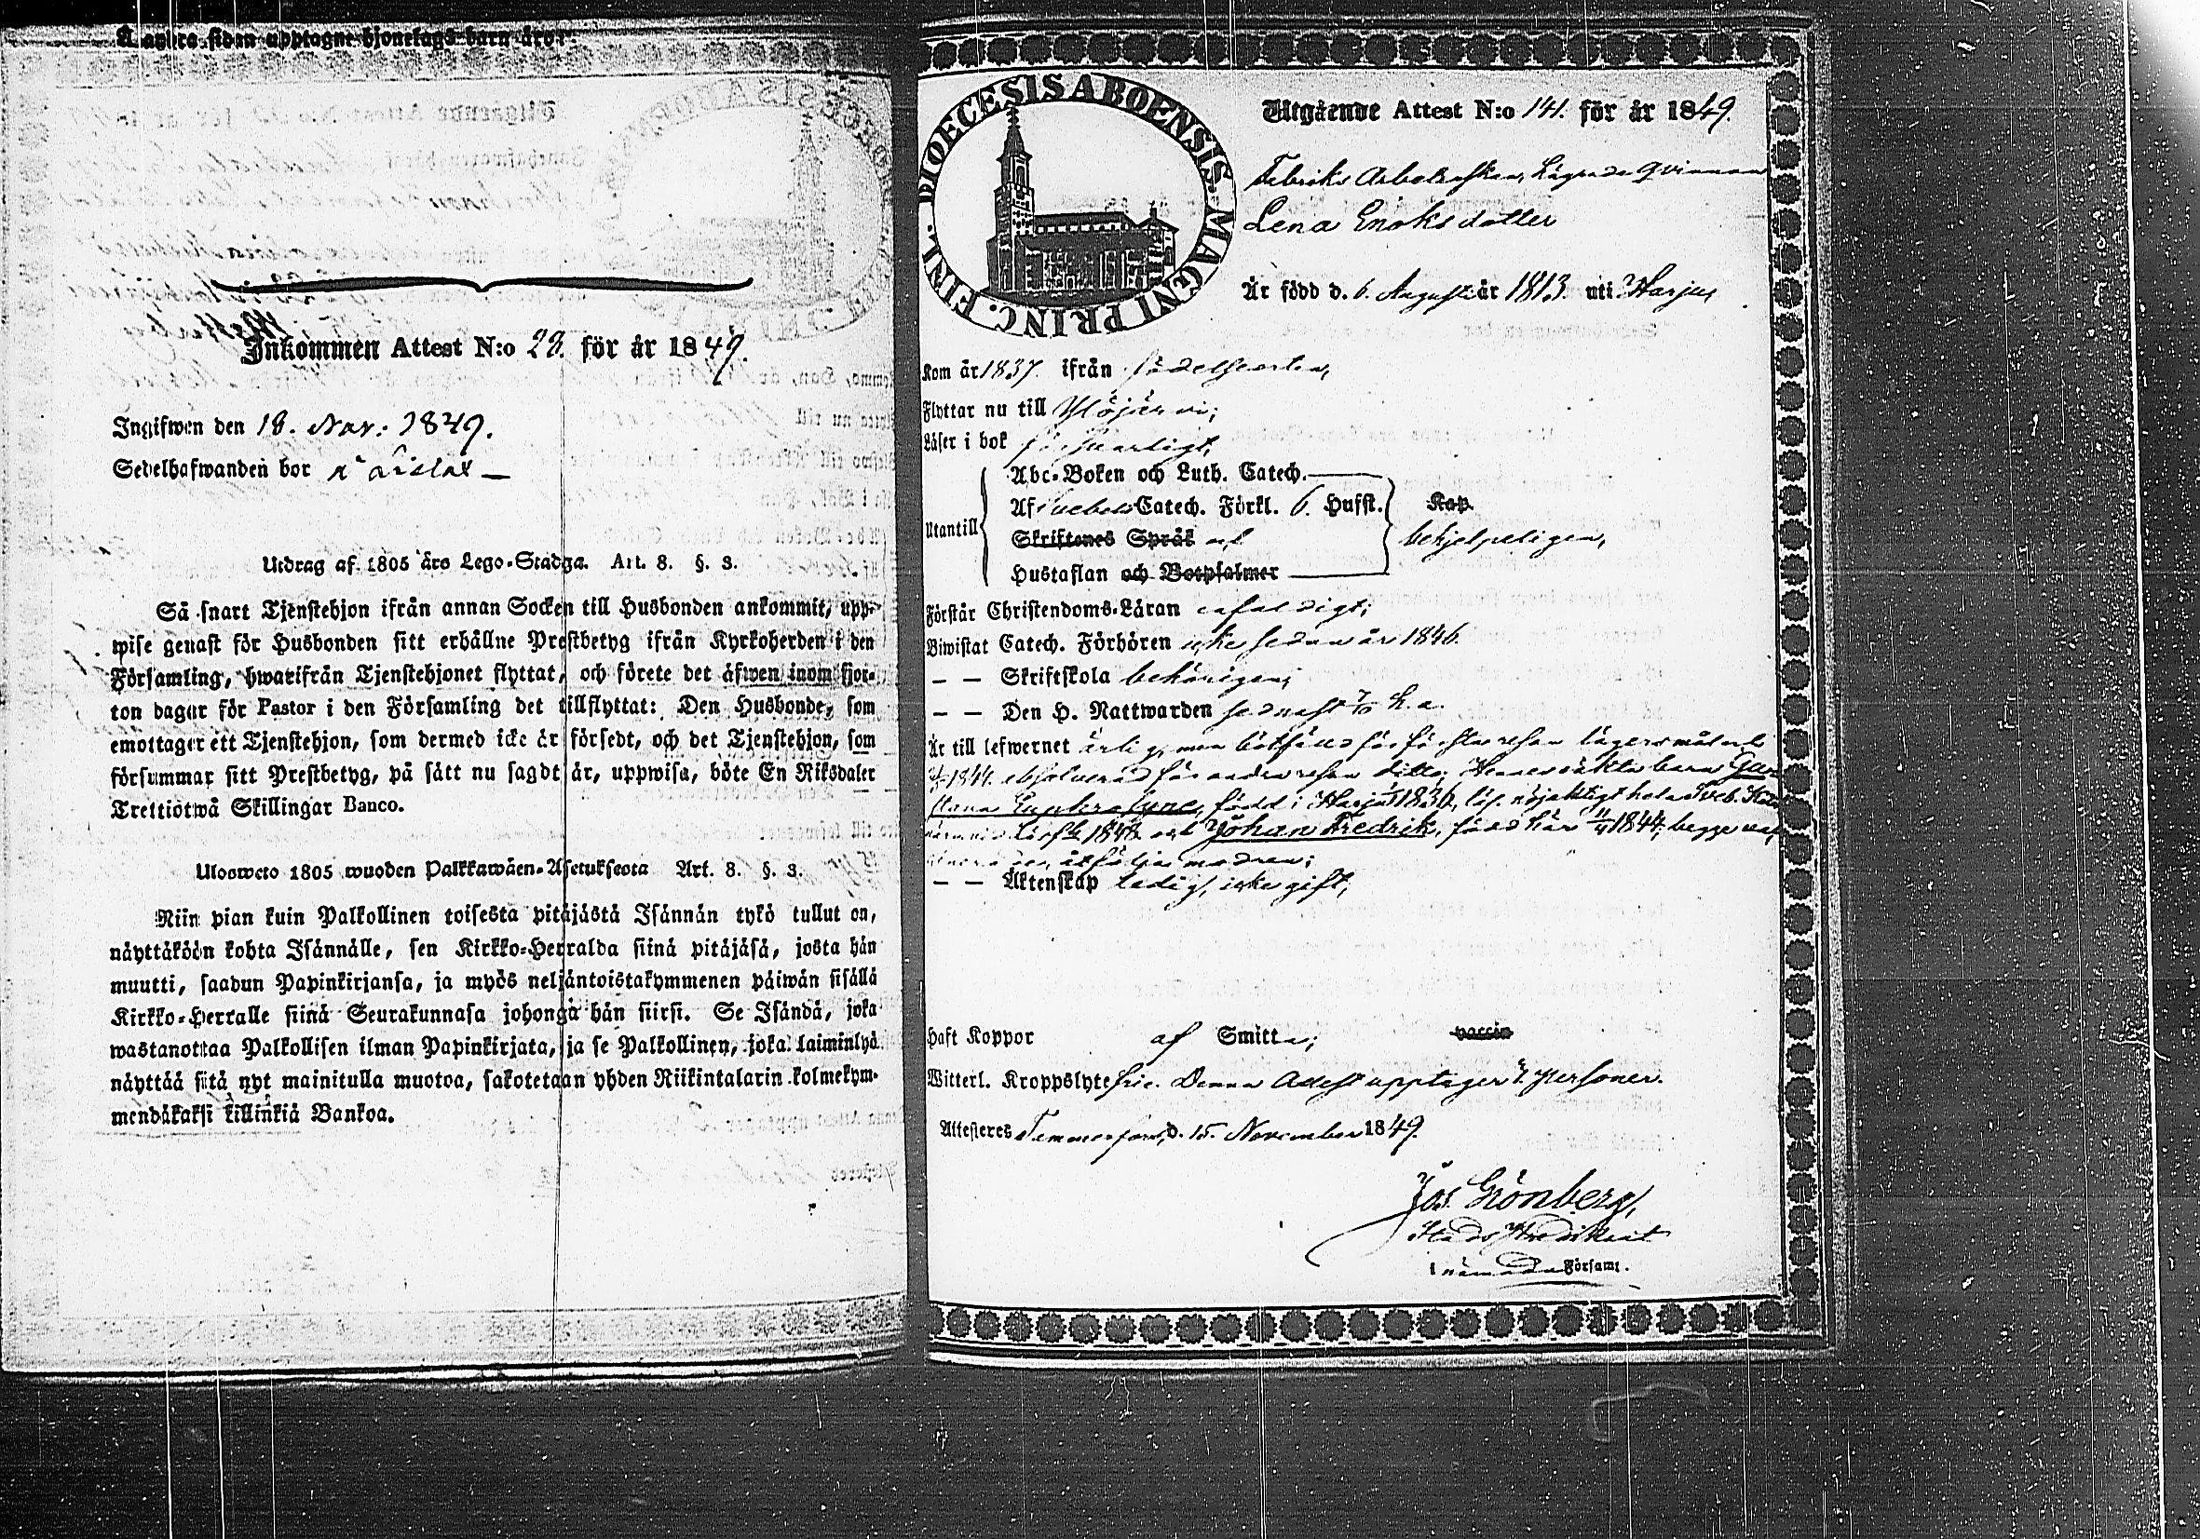 Å andra sidan upptagne hjonelags barn äro:
Inkommen Attest N:o 23. för år 1849.
Ingifwen den 18. Nov: 1849.
Sedelhafwanden bor
Utdrag af 1805 års Lego-Stadga. Art. 8. §. 3.
Så snart Tjenstehjon ifrån annan Socken till Husbonden ankommit, upp-
wise genast för Husbonden sitt erhållne Prestbetyg ifrån Kyrkoherden i den
Församling, hwarifrån Tjenstehjonet flyttat, och förete det äfwen inom fjor-
ton dagar för Pastor i den Församling det tillflyttat: Den Husbonde, som
emottager ett Tjenstehjon, som dermed icke är försedt, och det Tjenstehjon, som
försummar sitt Prestbetyg, på sätt nu sagdt är, uppwisa, böte En Riksdaler
Trettiotwå Skillingar Banco.
Ulosweto 1805 wuoden Palkkawäen-Asetuksesta Art. 8. §. 3.
Niin pian kuin Palkollinen toisesta pitäjästä Isännän tykö tullut on,
näyttäköön kohta Isännälle, sen Kirkko-Herralda siinä pitäjäsä, josta hän
muutti, saadun Papinkirjansa, ja myös neljäntoistakymmenen päiwän sisällä
Kirkko-Herralle siinä Seurakunnasa johonga hän siirsi. Se Isändä, joka
wastanottaa Palkollisen ilman Papinkirjata, ja se Palkollinen, joka laiminlyö
näyttää sitä nyt mainitulla muotoa, sakotetaan yhden Riikintalarin kolmekym-
mendäkaksi killinkiä Bankoa.
DIOECESIS ABOENSIS. MAGNI PRINC. FINL.
Utgående Attest N:o 141. för år 1849.
Fabriks Arbeterskan, Lägrade qvinnan
Lena Enoksdotter
Är född d. 6. Augusti år 1813. uti Harju,
Kom år 1837. ifrån födelseorten,
Flyttar nu till Ylöjärvi;
Läser i bok försvarligt,
Utantill
Abc-Boken och Luth. Catech.
Af Svebelii Catech. Förkl. 6. Hufst. Kap.
Skriftenes Språk begripeligen,
Hustaflan och Botpsalmer
Förstår Christendoms-Läran enfaldigt;
Biwistat Catech. Förhören icke sedan år 1846.
— — Skriftskola behörigen;
— — Den H. Nattwarden sednast 7/10 h.a.
Är till lefwernet ärlig, men bötfälld för första resan lägersmål och
1844. absolverad för andra resan ditto; Hennes oäkta barn Gus-
tava Euphrosyne, född i Harju 1836, nöjaktigt hela Sveb.
1848. och Johan Fredrik, född här 1844, begge
åtfölja modren;
— — Äktenskap ledig, icke gift,
Haft Koppor af Smitta; vaccin
Witterl. Kroppslyte fri. Denna Attest upptager 3. Personer.
Attesteres Tammerfors, d. 15. November 1849.
Jos. Grönberg,
Stads Predikant
i nämnda Församl.